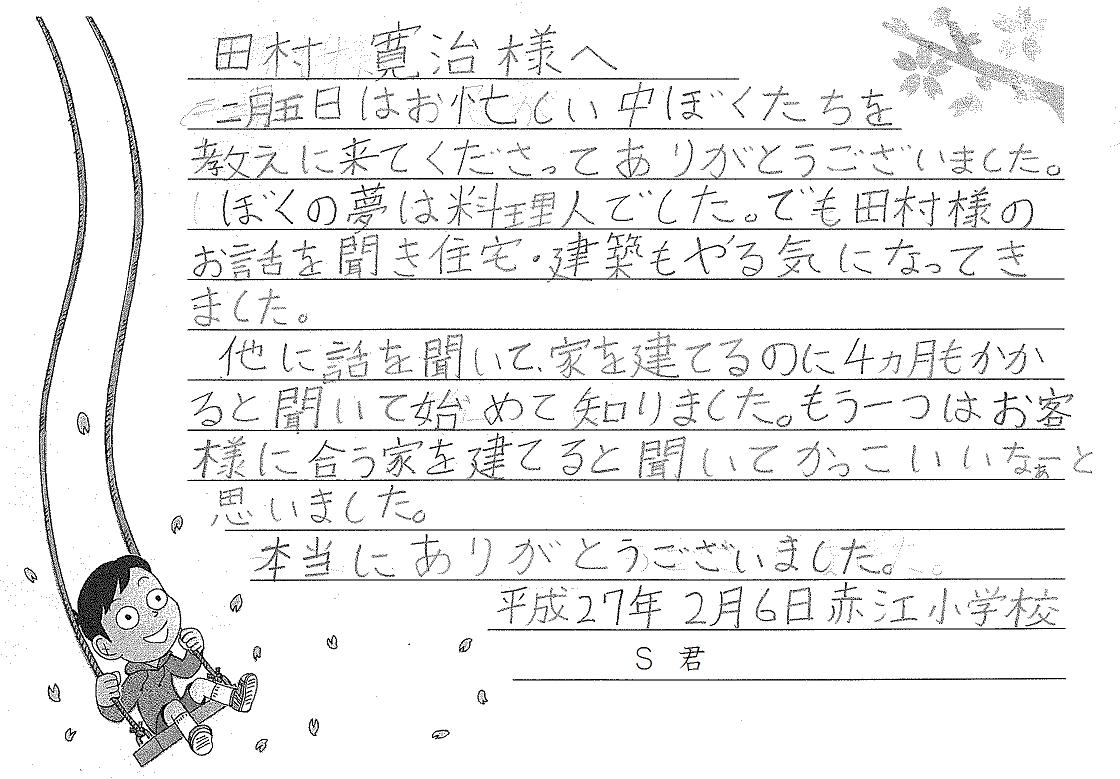 田村 寛治様へ
二月五日はお忙しい中ぼくたちを
教えに来てくださってありがとうございました。
ぼくの夢は料理人でした。でも田村様の
お話を聞き住宅・建築もやる気になってき
ました。
他に話を聞いて、家を建てるのに4ヵ月もかか
ると聞いて始めて知りました。もう一つはお客
様に合う家を建てると聞いてかっこいいなぁーと
思いました。
本当にありがとうございました。
平成27年 2月6日赤江小学校
S 君